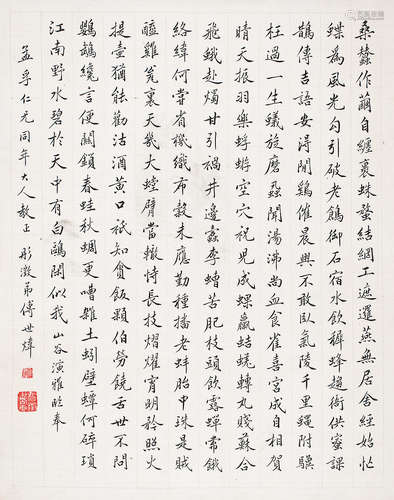 桑蠶作繭自纏裹蛛蝥結網工遮邏燕無居舍經始忙
蝶為風光勾引破老鶬御石宿水飲穉蜂趨衙供蜜課
鵲傳吉語安得閒鷄催晨興不敢臥氣陵千里蠅附驥
枉過一生蟻旋磨蝨聞湯沸尚血食雀喜宮成自相賀
晴天振羽樂蜉蝣空穴祝兒成蜾蠃蛣蜣轉丸賤蘇合
飛蛾赴燭甘引禍井邊蠹李螬苦肥枝頭飲露蟬常餓
絡緯何嘗省機織布穀未應勤種播老蚌胎中珠是賊
醯雞瓮裏天幾大螳臂當轍恃長技熠燿宵明矜照火
提壺猶能勸沽酒黃口祇知貪飯顆伯勞饒舌世不問
鸚鵡纔言便關鎖春蛙秋蜩更嘈雜土蚓壁蟫何碎瑣
江南野水碧於天中有白鷗閒似我 山谷演雅 奉
孟孚仁兄同年大人教正 彤澂弟傅世煒